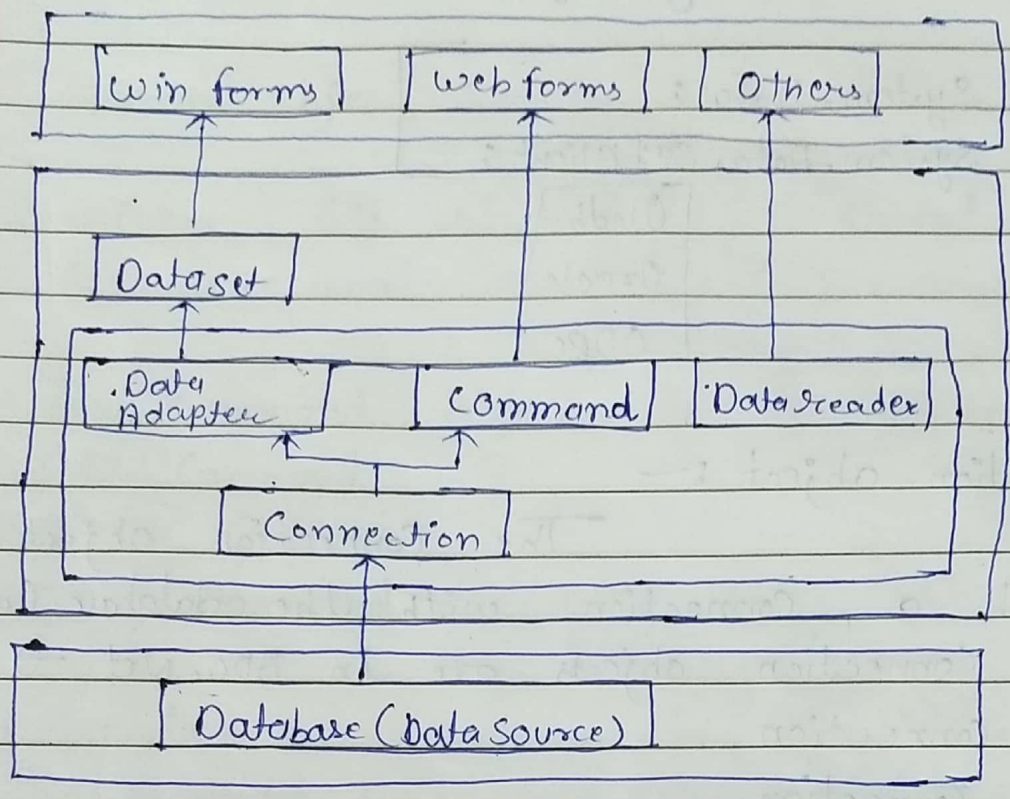 Win forms
Web forms
Others
Dataset
.Data
Adapter
Command
Data reader
Connection
Database (Data Source)